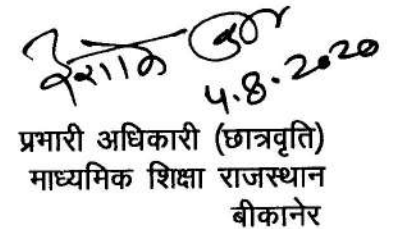 4.8.2020
प्रभारी अधिकारी (छात्रवृति)
माध्यमिक शिक्षा राजस्थान
बीकानेर